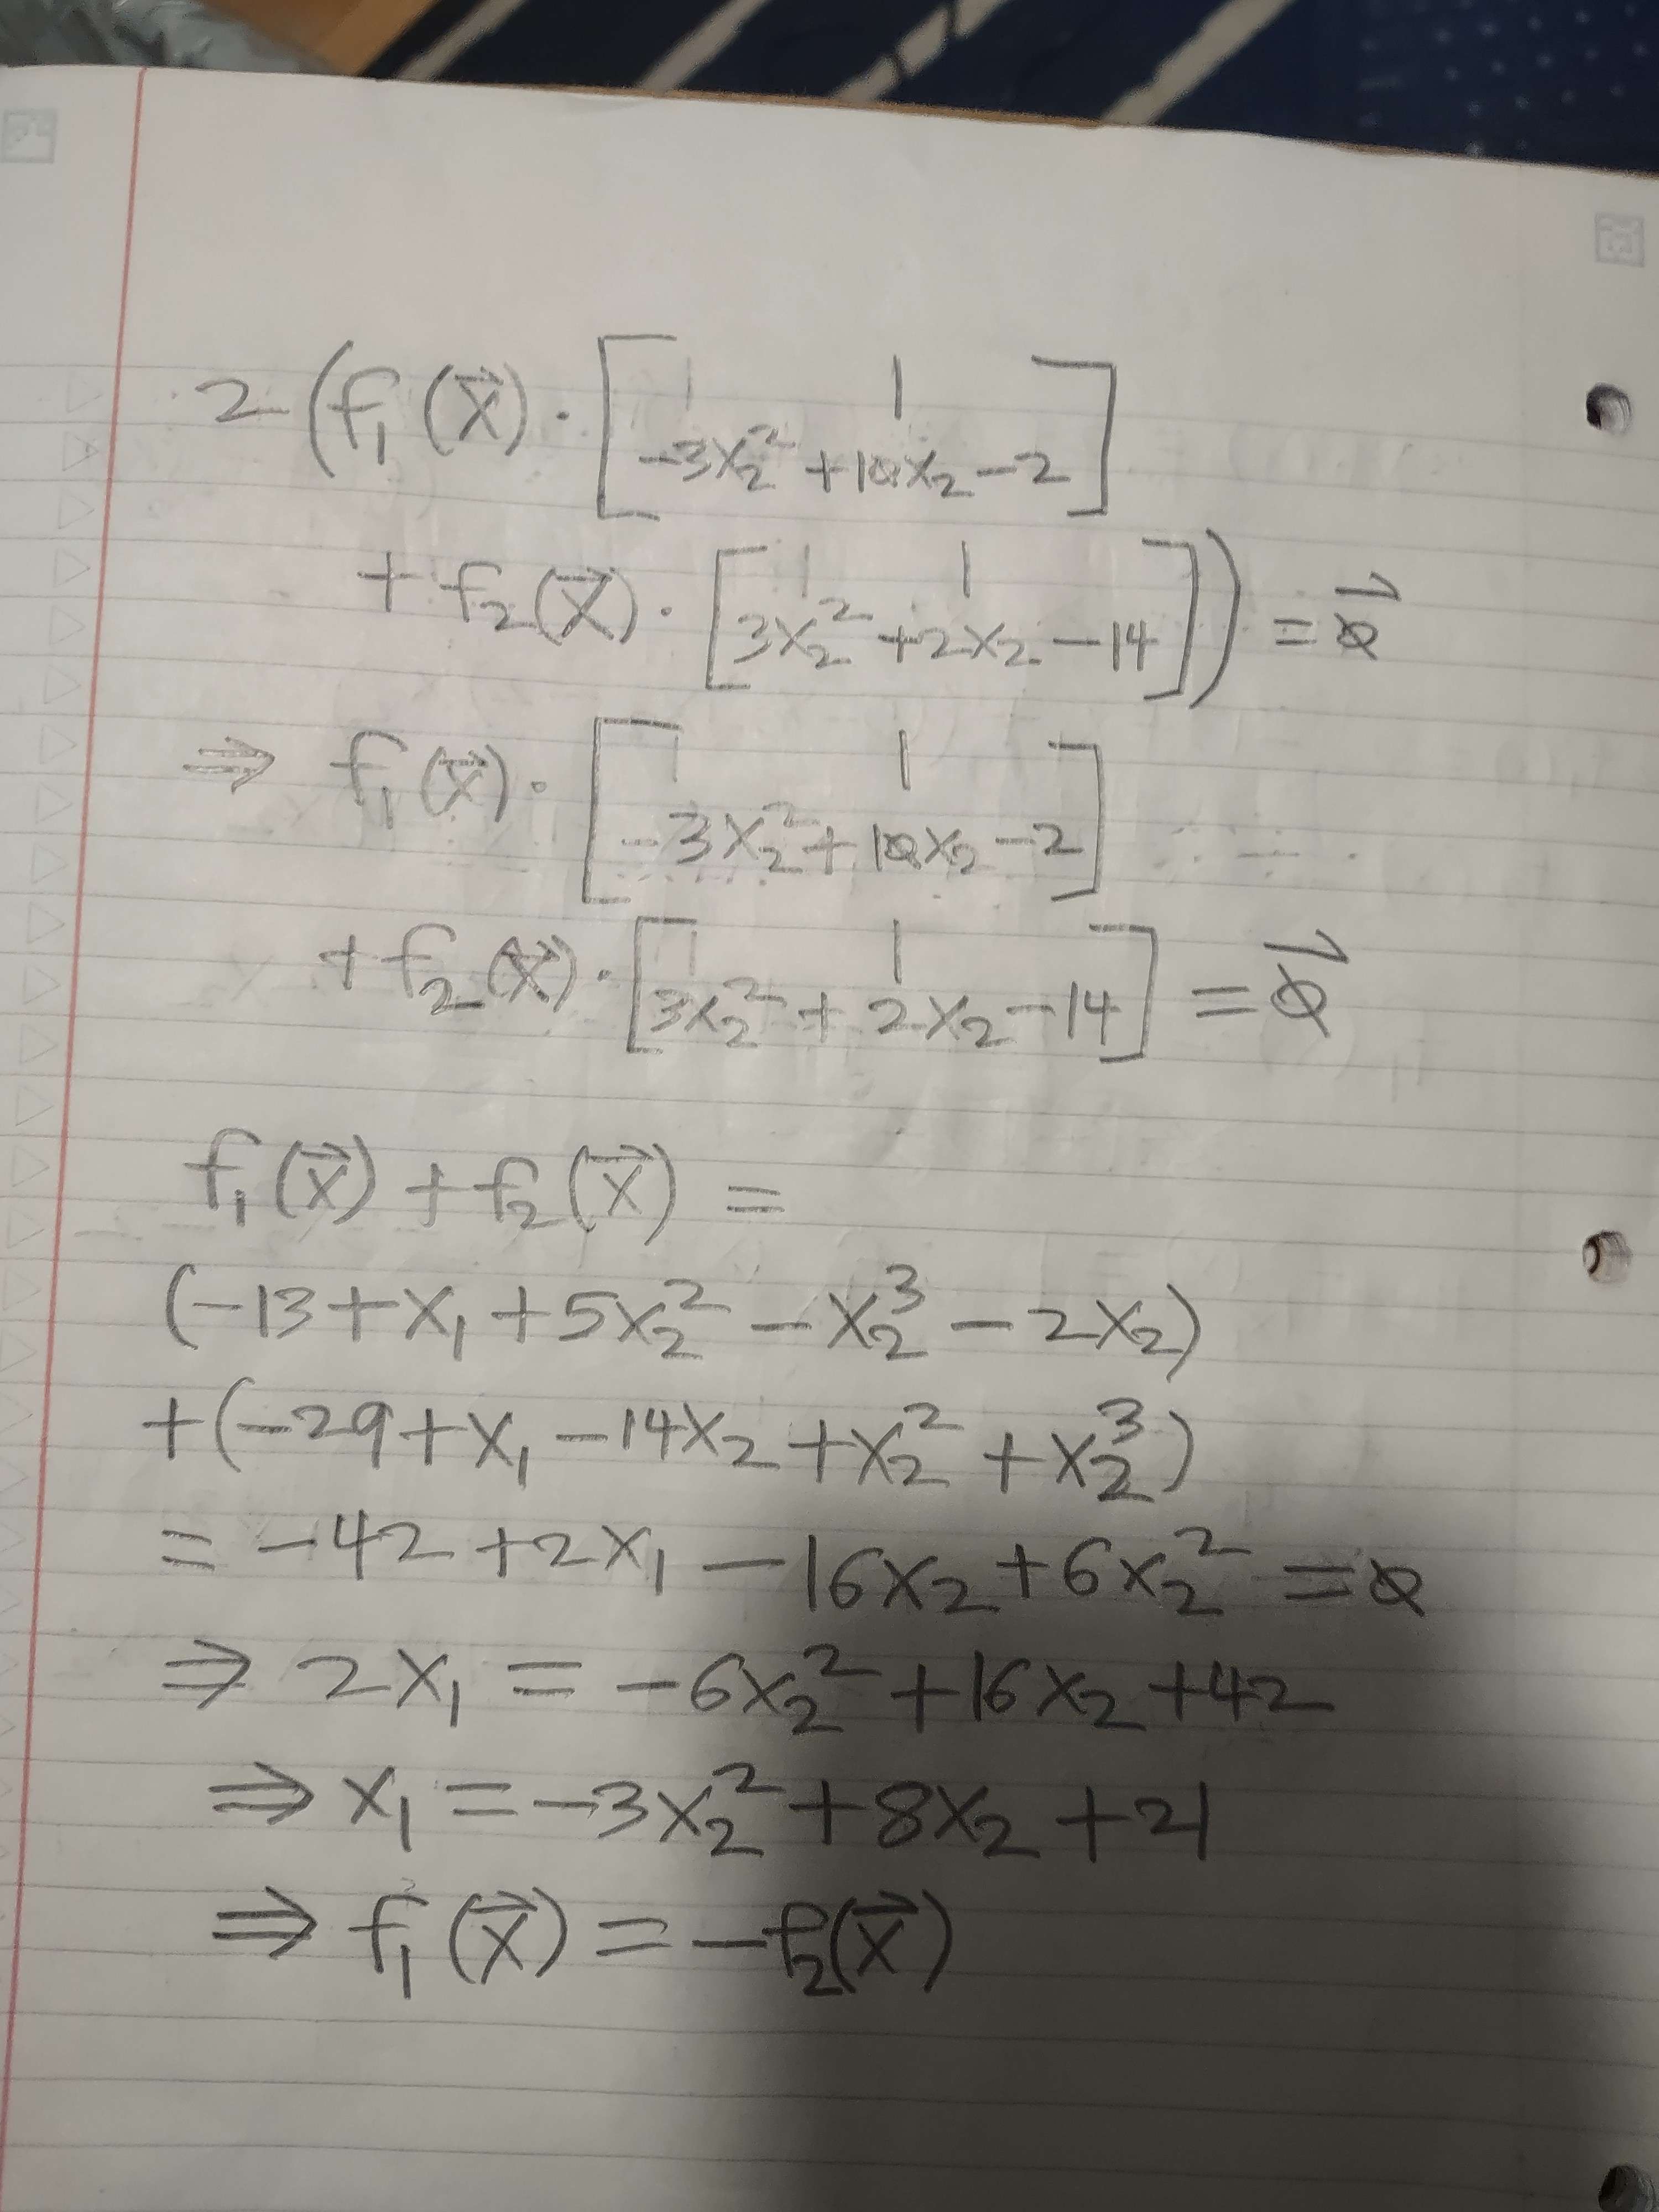 2(f₁(x⃗)·[1
-3x₂²+10x₂-2]
+f₂(x⃗)·[1
3x₂²+2x₂-14])=0⃗
⇒ f₁(x⃗)·[1
-3x₂²+10x₂-2]
+f₂(x⃗)·[1
3x₂²+2x₂-14]=0⃗
f₁(x⃗)+f₂(x⃗)=
(-13+x₁+5x₂²-x₂³-2x₂)
+(-29+x₁-14x₂+x₂²+x₂³)
=-42+2x₁-16x₂+6x₂²=0
⇒ 2x₁=-6x₂²+16x₂+42
⇒ x₁=-3x₂²+8x₂+21
⇒ f₁(x⃗)=-f₂(x⃗)